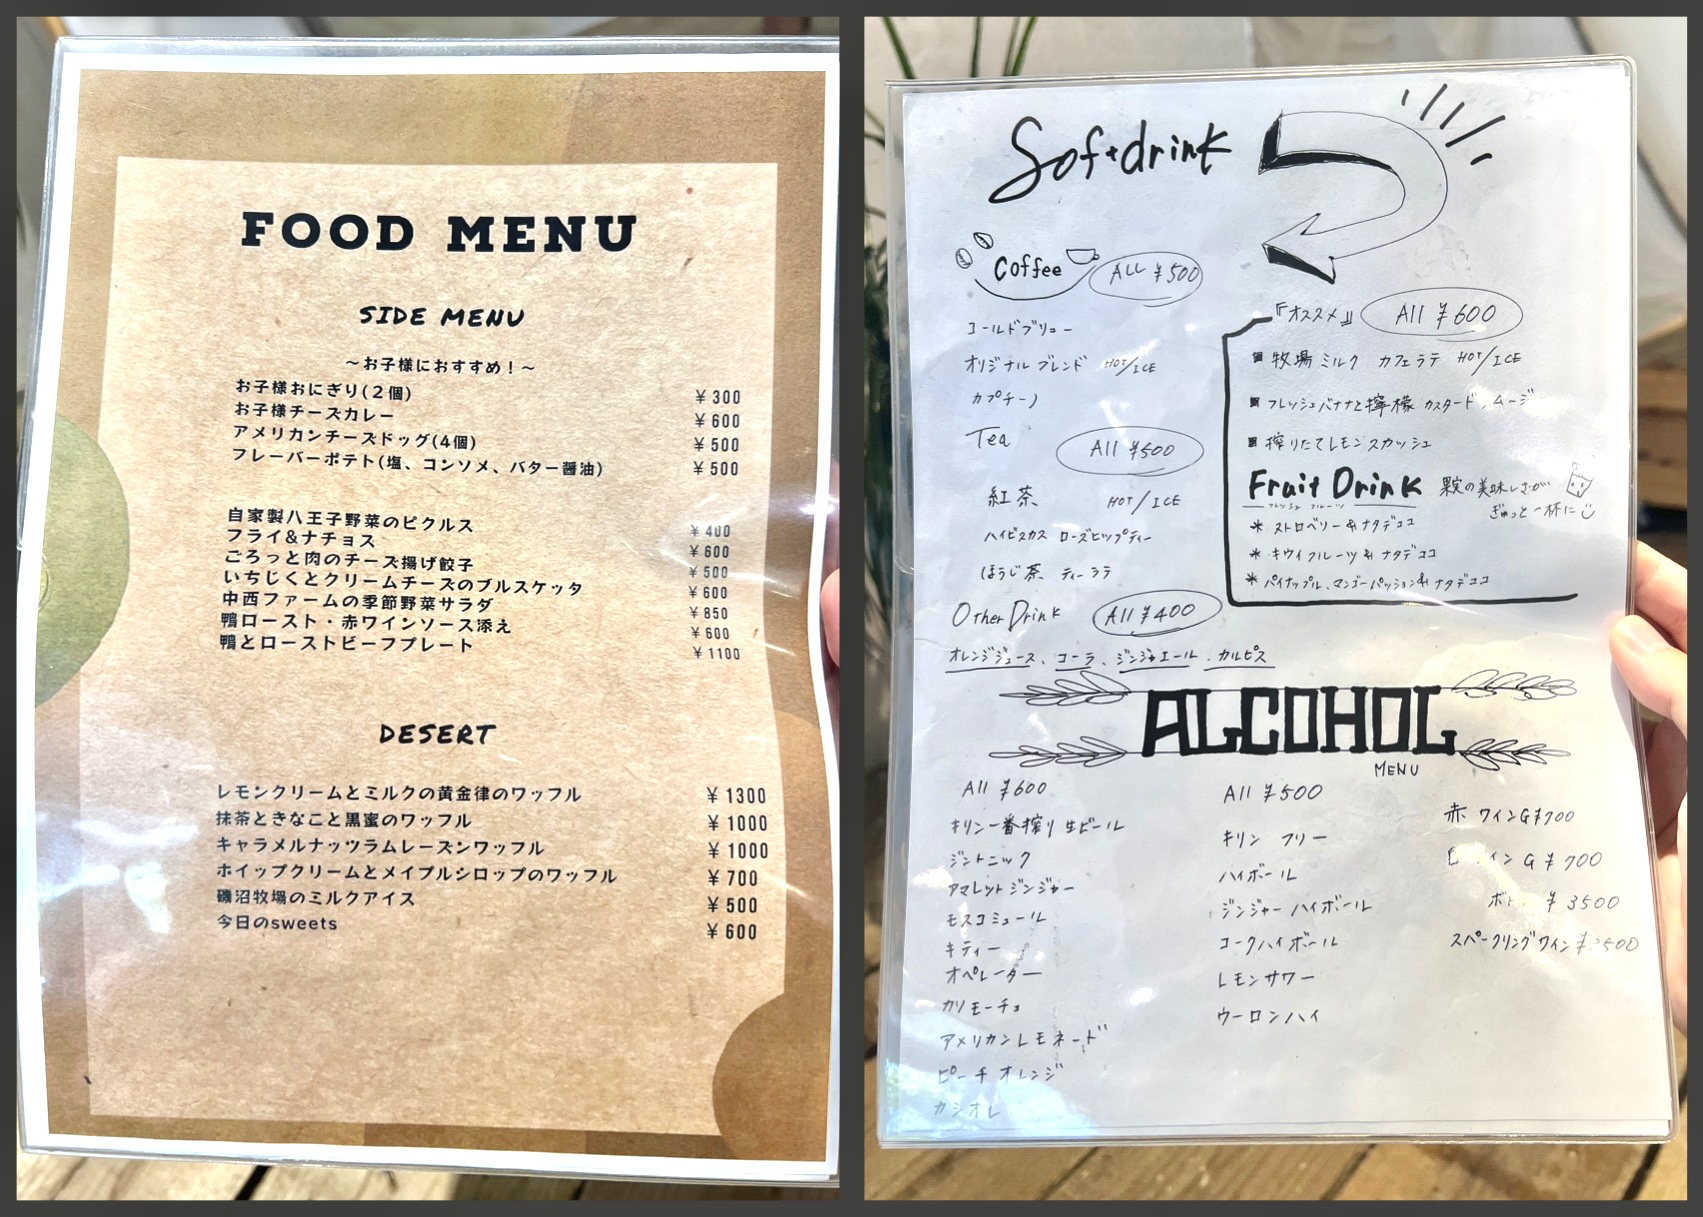 FOOD MENU
SIDE MENU
～お子様におすすめ！～
お子様おにぎり(２個) ￥300
お子様チーズカレー ￥600
アメリカンチーズドッグ(4個) ￥500
フレーバーポテト(塩、コンソメ、バター醤油) ￥500
自家製八王子野菜のピクルス ￥400
フライ&ナチョス ￥600
ごろっと肉のチーズ揚げ餃子 ￥500
いちじくとクリームチーズのブルスケッタ ￥600
中西ファームの季節野菜サラダ ￥850
鴨ロースト・赤ワインソース添え ￥600
鴨とローストビーフプレート ￥1100
DESERT
レモンクリームとミルクの黄金律のワッフル ￥1300
抹茶ときなこと黒蜜のワッフル ￥1000
キャラメルナッツラムレーズンワッフル ￥1000
ホイップクリームとメイプルシロップのワッフル ￥700
磯沼牧場のミルクアイス ￥500
今日のsweets ￥600
Softdrink
Coffee ALL ¥500
コールドブリュー
オリジナルブレンド HOT/ICE
カプチーノ
Tea All ¥500
紅茶 HOT/ICE
ハイビスカス ローズヒップティー
ほうじ茶 ティーラテ
Other Drink All ¥400
オレンジジュース、コーラ、ジンジャエール、カルピス
『オススメ』 All ¥600
■ 牧場ミルク カフェラテ HOT/ICE
■ フレッシュバナナと檸檬 カスタード
■ 搾りたてレモンスカッシュ
Fruit Drink 果実の美味しさが
フレッシュ フルーツ ぎゅっと一杯に
* ストロベリー & ナタデココ
* キウイフルーツ & ナタデココ
* パイナップル、マンゴーパッション & ナタデココ
ALCOHOL
MENU
All ¥600
キリン一番搾り 生ビール
ジントニック
アマレットジンジャー
モスコミュール
キティー
オペレーター
カリモーチョ
アメリカンレモネード
ピーチオレンジ
カシオレ
All ¥500
キリン フリー
ハイボール
ジンジャーハイボール
コークハイボール
レモンサワー
ウーロンハイ
赤 ワインG¥700
イン G ¥700
¥3500
スパークリングワイン